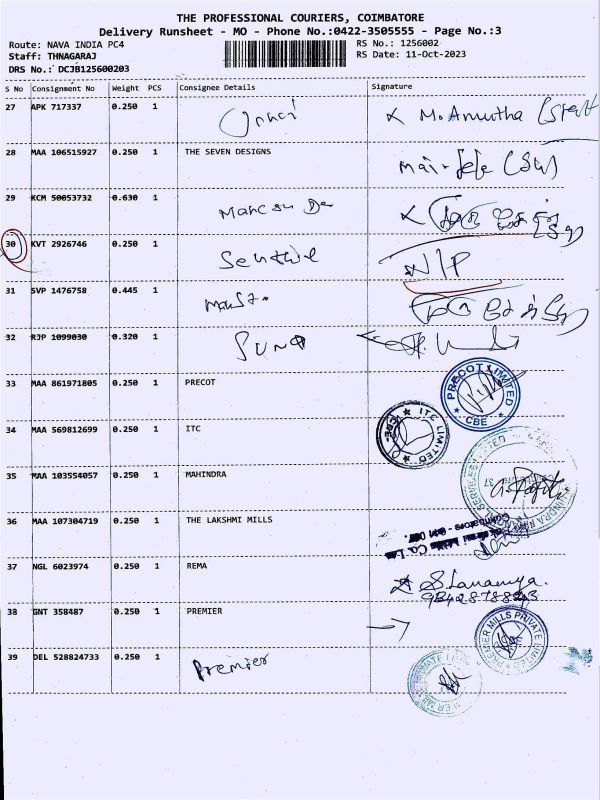 THE PROFESSIONAL COURIERS, COIMBATORE
Delivery Runsheet - MO - Phone No.:0422-3505555 - Page No.:3
Route: NAVA INDIA PC4 RS No.: 1256002
Staff: THNAGARAJ RS Date: 11-Oct-2023
DRS No.: DCJB125600203
S No Consignment No Weight PCS Consignee Details Signature
27 APK 717337 0.250 1 M. Amutha
28 MAA 106515927 0.250 1 THE SEVEN DESIGNS
29 KCM 50053732 0.630 1
30 KVT 2926746 0.250 1 Senthil N/P
31 SVP 1476758 0.445 1
32 RJP 1099030 0.320 1
33 MAA 861971805 0.250 1 PRECOT PRECOT LIMITED CBE
34 MAA 569812699 0.250 1 ITC ITC LIMITED CBE
35 MAA 103554057 0.250 1 MAHINDRA
36 MAA 107304719 0.250 1 THE LAKSHMI MILLS
37 NGL 6023974 0.250 1 REMA
38 GNT 358487 0.250 1 PREMIER PREMIER MILLS PRIVATE LIMITED
39 DEL 528824733 0.250 1 Premier